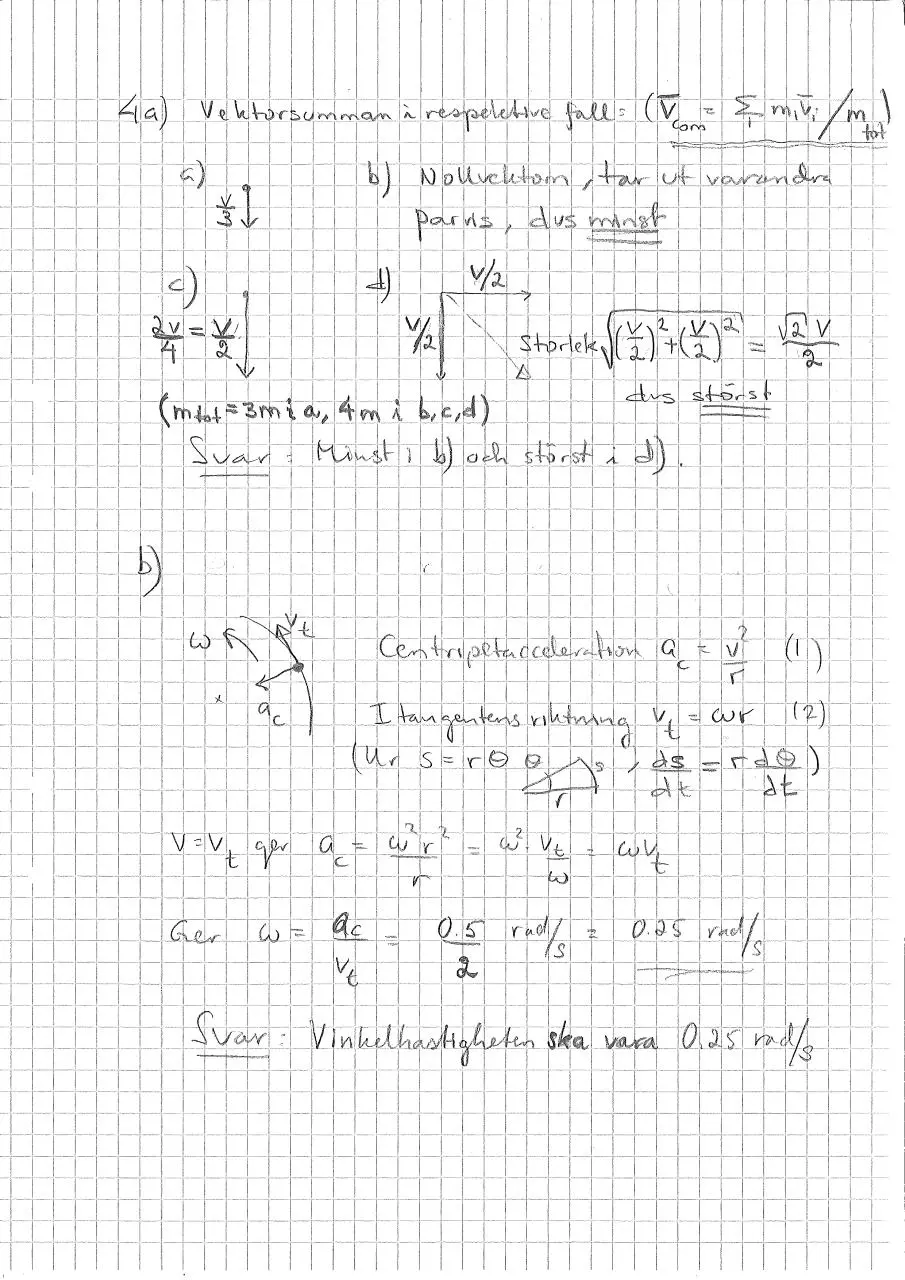 4a) Vektorsumman i respektive fall: (v̄com = Σi mi v̄i / mtot)
a) v/3
b) Nollvektorn, tar ut varandra
parvis, dvs minst
c) 2v/4 = v/2
d) v/2
v/2
Storlek √((v/2)² + (v/2)²) = √2 v/2
dvs störst
(mtot = 3m i a, 4m i b,c,d)
Svar: Minst i b) och störst i d).
b)
ω vt
ac
Centripetalacceleration ac = v²/r (1)
I tangentens riktning vt = ωr (2)
(Ur s = rθ θ s r , ds/dt = r dθ/dt)
v = vt ger ac = ω²r²/r = ω² · vt/ω = ωvt
Ger ω = ac/vt = 0.5/2 rad/s = 0.25 rad/s
Svar: Vinkelhastigheten ska vara 0.25 rad/s